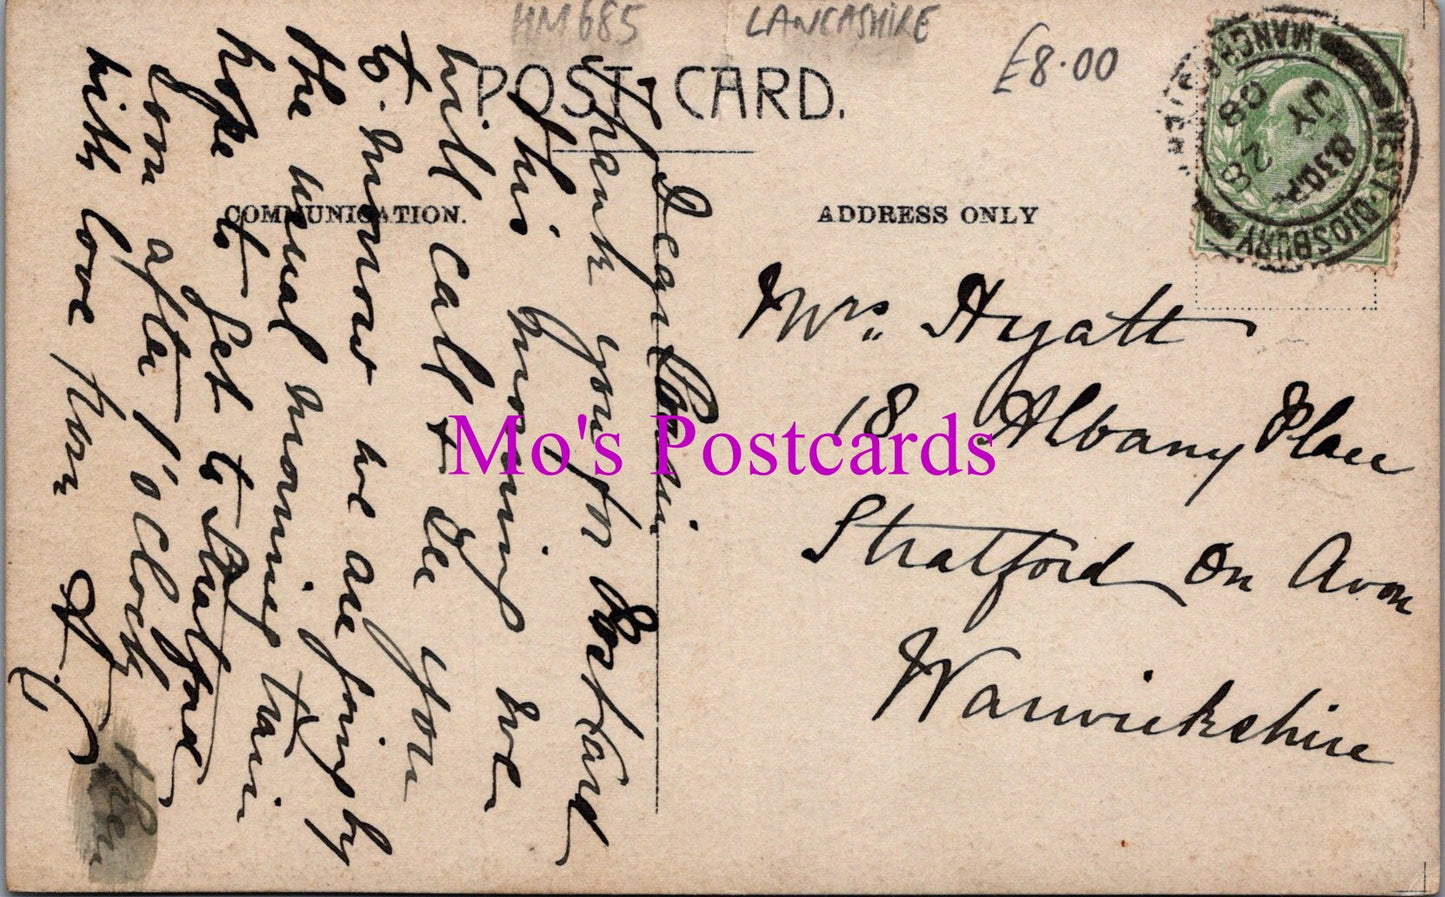 HM685
LANCASHIRE
£8.00
POST CARD.
COMMUNICATION.
ADDRESS ONLY
WEST·DIDSBURY
MANCHESTER
8 30 PM
JY 28
08
Mrs. Hyatt
18 Albany Place
Stratford On Avon
Warwickshire
Dear Cousin
Thank you for Postcard
this morning we
will call & see you
to-morrow we are going by
the usual morning train
hope to get to Stratford
soon after 1 o'clock
with love from
Mo's Postcards